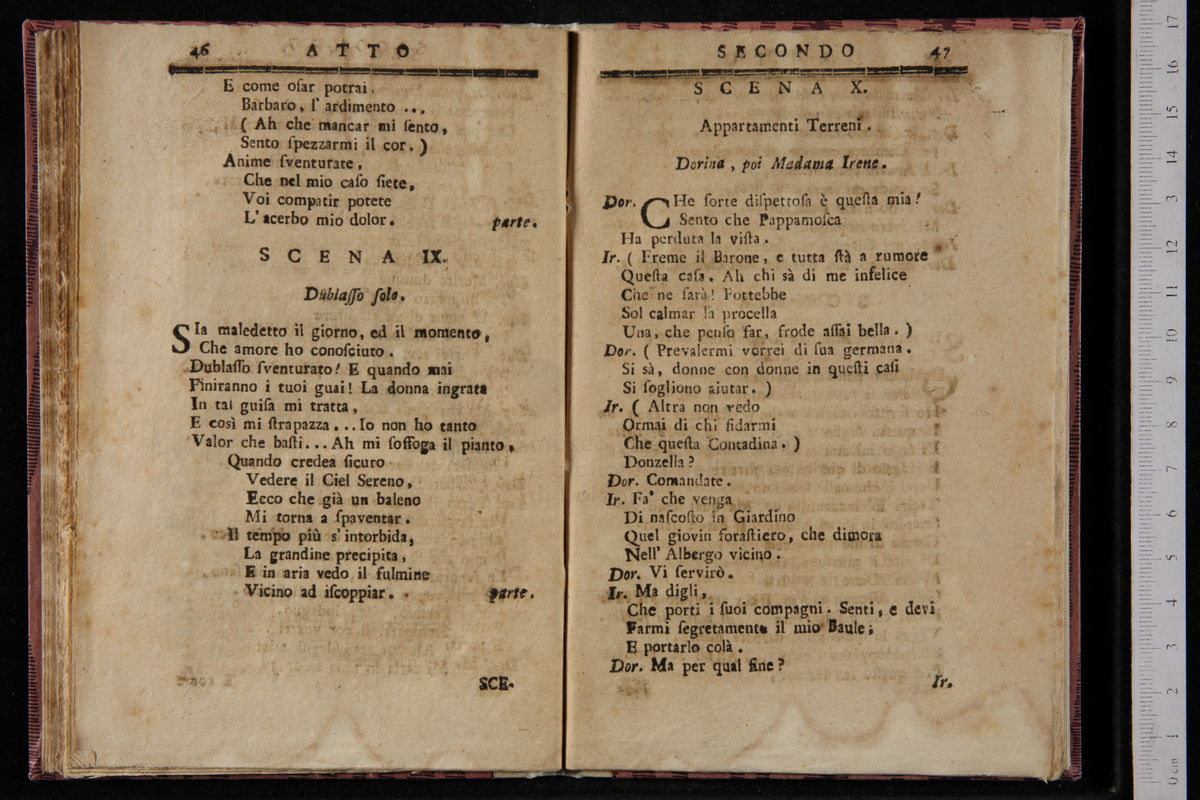 46 ATTO
E come oſar potrai
Barbaro, l' ardimento ...
( Ah che mancar mi ſento,
Sento ſpezzarmi il cor. )
Anime ſventurate,
Che nel mio caſo ſiete,
Voi compatir potete
L' acerbo mio dolor. parte.
SCENA IX.
Dublaſſo ſolo.
SIa maledetto il giorno, ed il momento,
Che amore ho conoſciuto.
Dublaſſo ſventurato! E quando mai
Finiranno i tuoi guai! La donna ingrata
In tal guiſa mi tratta,
E così mi ſtrapazza ... Io non ho tanto
Valor che baſti... Ah mi ſoffoga il pianto.
Quando credea ſicuro
Vedere il Ciel Sereno,
Ecco che già un baleno
Mi torna a ſpaventar.
Il tempo più s' intorbida,
La grandine precipita,
E in aria vedo il fulmine
Vicino ad iſcoppiar. parte.
SCE-
SECONDO 47
SCENA X.
Appartamenti Terreni.
Dorina, poi Madama Irene.
Dor. CHe ſorte diſpettoſa è queſta mia!
Sento che Pappamoſca
Ha perduta la viſta.
Ir. ( Freme il Barone, e tutta ſtà a rumore
Queſta caſa. Ah chi sà di me infelice
Che ne ſarà! Pottebbe
Sol calmar la procella
Una, che penſo far, frode aſſai bella. )
Dor. ( Prevalermi vorrei di ſua germana.
Si sà, donne con donne in queſti caſi
Si ſogliono aiutar. )
Ir. ( Altra non vedo
Ormai di chi fidarmi
Che queſta Contadina. )
Donzella?
Dor. Comandate.
Ir. Fa' che venga
Di naſcoſto in Giardino
Quel giovin foraſtiero, che dimora
Nell' Albergo vicino.
Dor. Vi ſervirò.
Ir. Ma digli,
Che porti i ſuoi compagni. Senti, e devi
Farmi ſegretamente il mio Baule;
E portarlo colà.
Dor. Ma per qual fine?
Ir.
0 cm 1 2 3 4 5 6 7 8 9 10 11 12 13 14 15 16 17